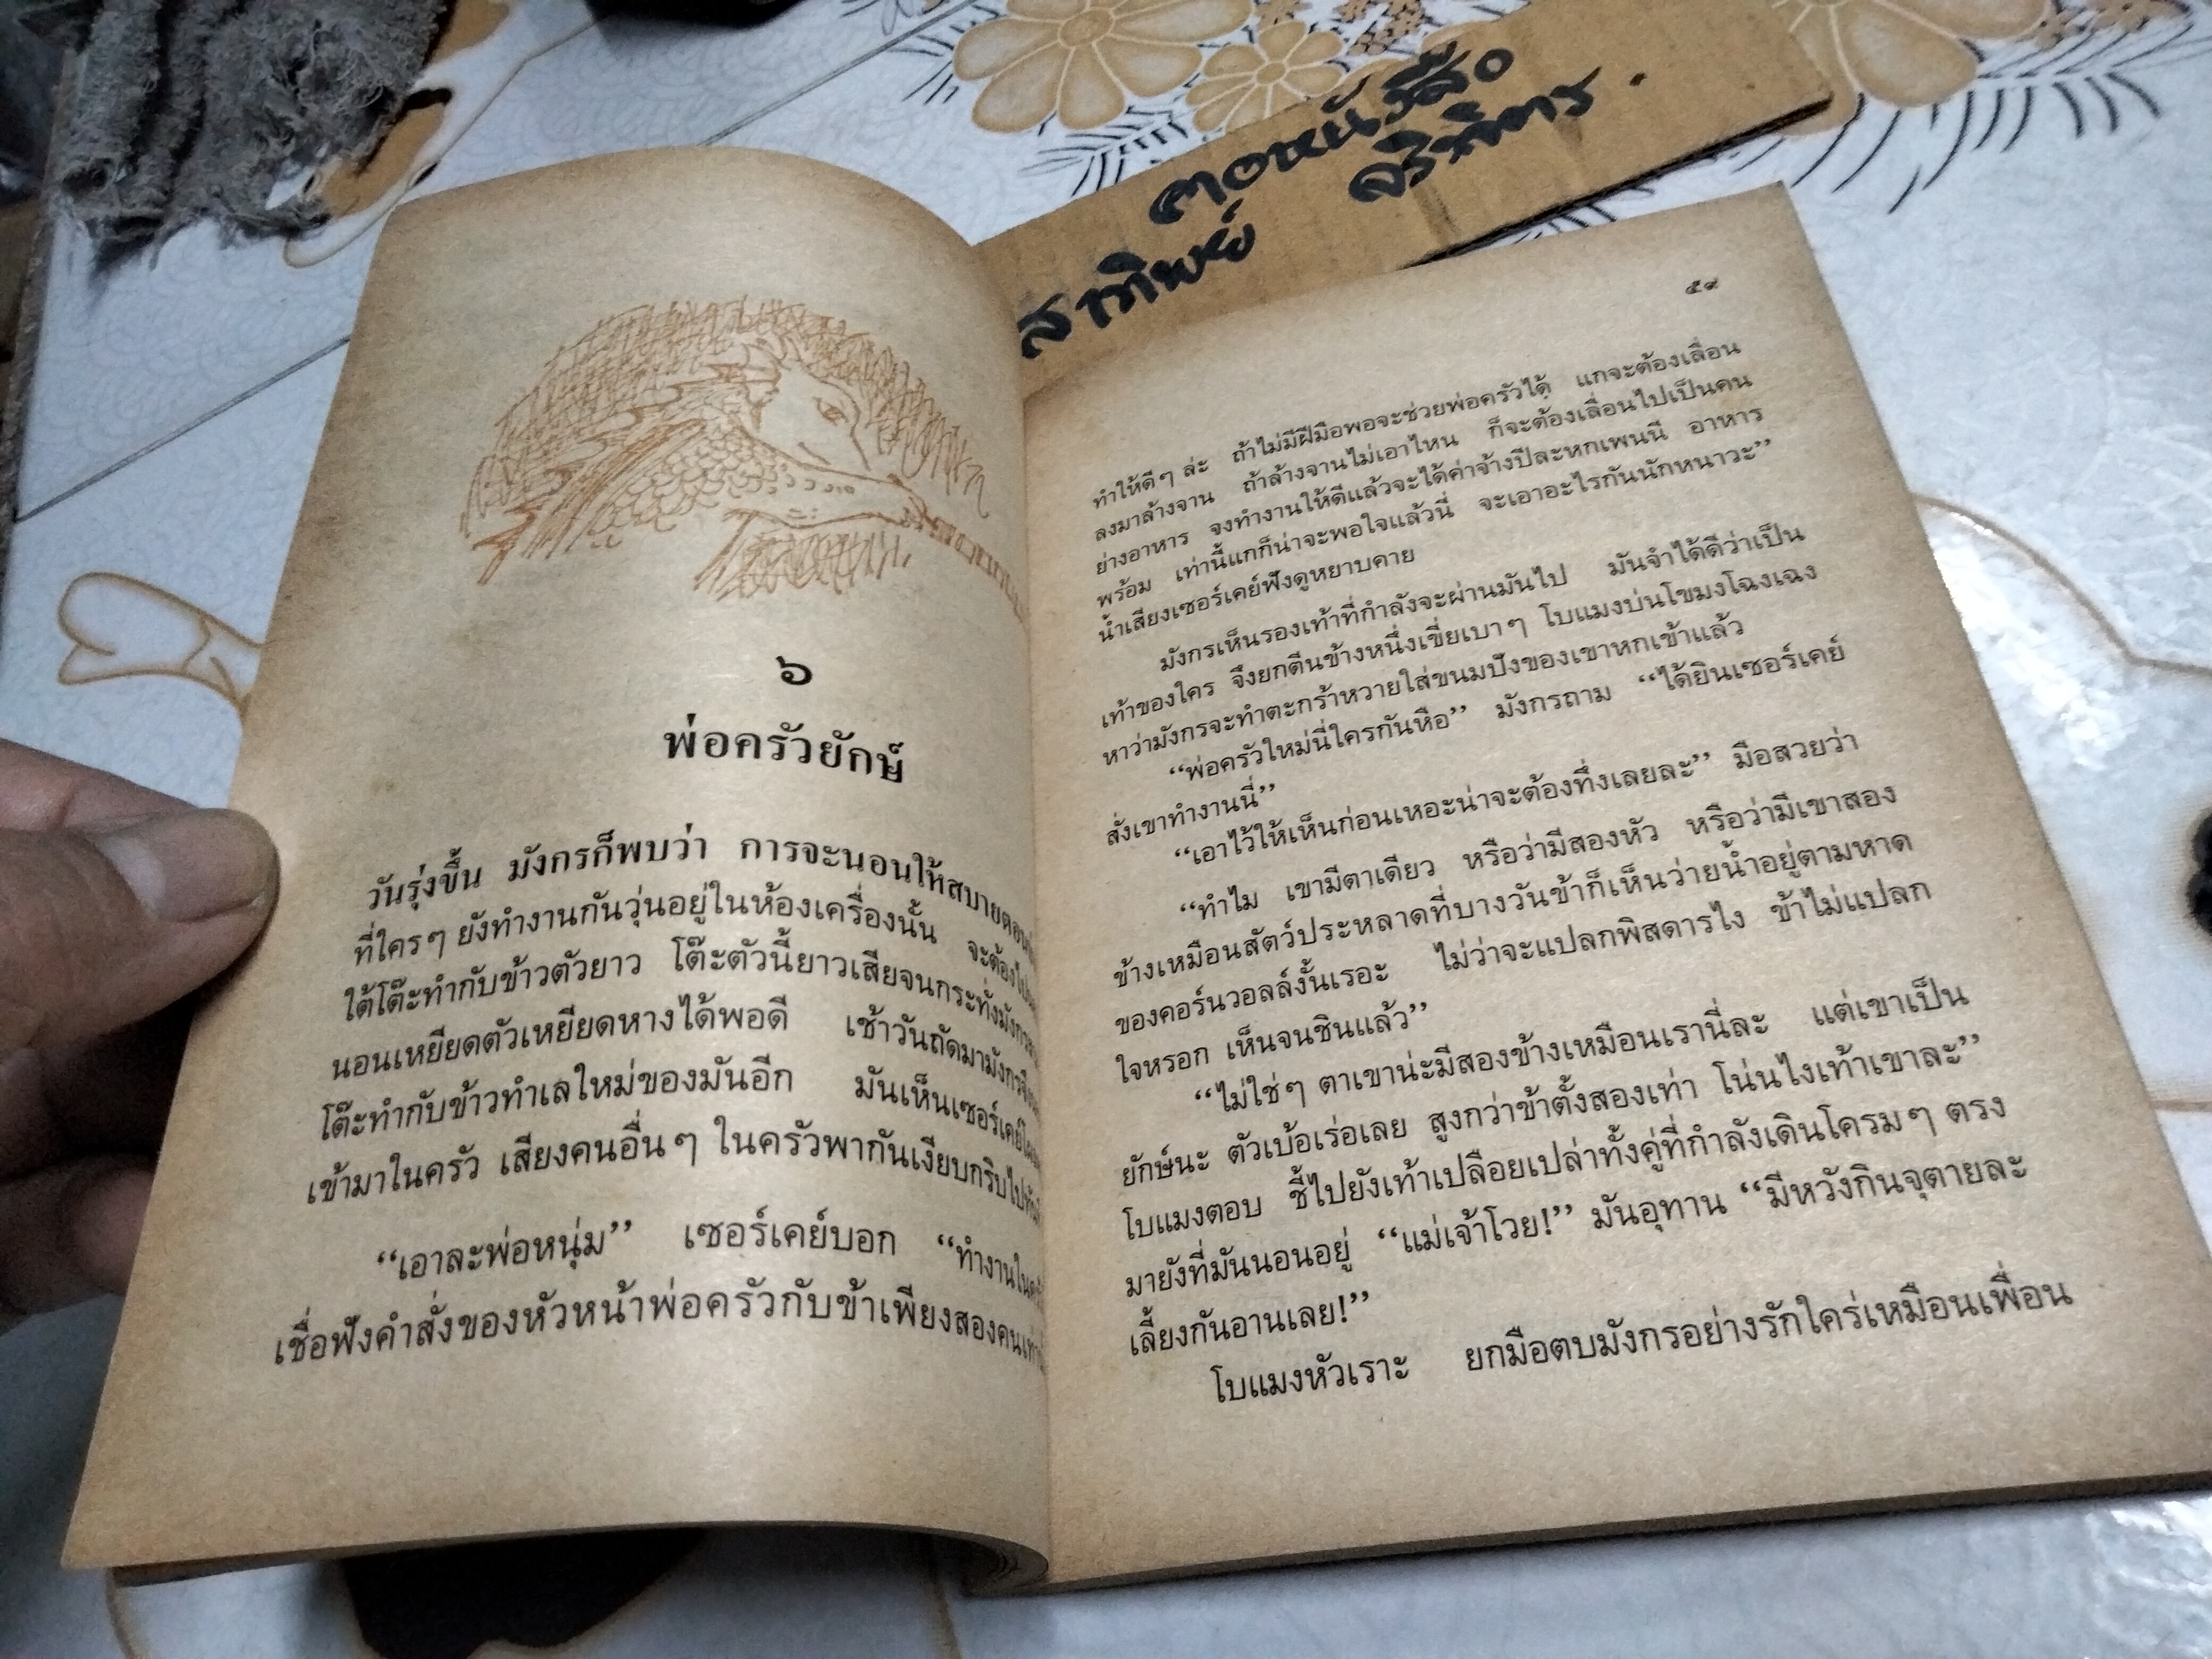 คอหนังสือ
สาทิพย์
๖
พ่อครัวยักษ์
วันรุ่งขึ้น มังกรก็พบว่า การจะนอนให้สบายตอน
ที่ใครๆ ยังทำงานกันวุ่นอยู่ในห้องเครื่องนั้น จะต้องไป
ใต้โต๊ะทำกับข้าวตัวยาว โต๊ะตัวนี้ยาวเสียจนกระทั่งมังกร
นอนเหยียดตัวเหยียดหางได้พอดี เช้าวันถัดมามังกร
โต๊ะทำกับข้าวทำเลใหม่ของมันอีก มันเห็นเซอร์เคย์
เข้ามาในครัว เสียงคนอื่นๆ ในครัวพากันเงียบกริบไป
“เอาละพ่อหนุ่ม” เซอร์เคย์บอก “ทำงานใน
เชื่อฟังคำสั่งของหัวหน้าพ่อครัวกับข้าเพียงสองคน
๕๙
ทำให้ดีๆ ล่ะ ถ้าไม่มีฝีมือพอจะช่วยพ่อครัวได้ แกจะต้องเลื่อน
ลงมาล้างจาน ถ้าล้างจานไม่เอาไหน ก็จะต้องเลื่อนไปเป็นคน
ย่างอาหาร จงทำงานให้ดีแล้วจะได้ค่าจ้างปีละหกเพนนี อาหาร
พร้อม เท่านี้แกก็น่าจะพอใจแล้วนี่ จะเอาอะไรกันนักหนาวะ”
น้ำเสียงเซอร์เคย์ฟังดูหยาบคาย
มังกรเห็นรองเท้าที่กำลังจะผ่านมันไป มันจำได้ดีว่าเป็น
เท้าของใคร จึงยกตีนข้างหนึ่งเขี่ยเบาๆ โบแมงบ่นโขมงโฉงเฉง
หาว่ามังกรจะทำตะกร้าหวายใส่ขนมปังของเขาหกเข้าแล้ว
“พ่อครัวใหม่นี่ใครกันหือ” มังกรถาม “ได้ยินเซอร์เคย์
สั่งเขาทำงานนี่”
“เอาไว้ให้เห็นก่อนเหอะน่าจะต้องทึ่งเลยละ” มือสวยว่า
“ทำไม เขามีตาเดียว หรือว่ามีสองหัว หรือว่ามีเขาสอง
ข้างเหมือนสัตว์ประหลาดที่บางวันข้าก็เห็นว่ายน้ำอยู่ตามหาด
ของคอร์นวอลล์งั้นเรอะ ไม่ว่าจะแปลกพิสดารไง ข้าไม่แปลก
ใจหรอก เห็นจนชินแล้ว”
“ไม่ใช่ๆ ตาเขาน่ะมีสองข้างเหมือนเรานี่ละ แต่เขาเป็น
ยักษ์นะ ตัวเบ้อเร่อเลย สูงกว่าข้าตั้งสองเท่า โน่นไงเท้าเขาละ”
โบแมงตอบ ชี้ไปยังเท้าเปลือยเปล่าทั้งคู่ที่กำลังเดินโครมๆ ตรง
มายังที่มันนอนอยู่ “แม่เจ้าโวย!” มันอุทาน “มีหวังกินจุตายละ
เลี้ยงกันอานเลย!”
โบแมงหัวเราะ ยกมือตบมังกรอย่างรักใคร่เหมือนเพื่อน